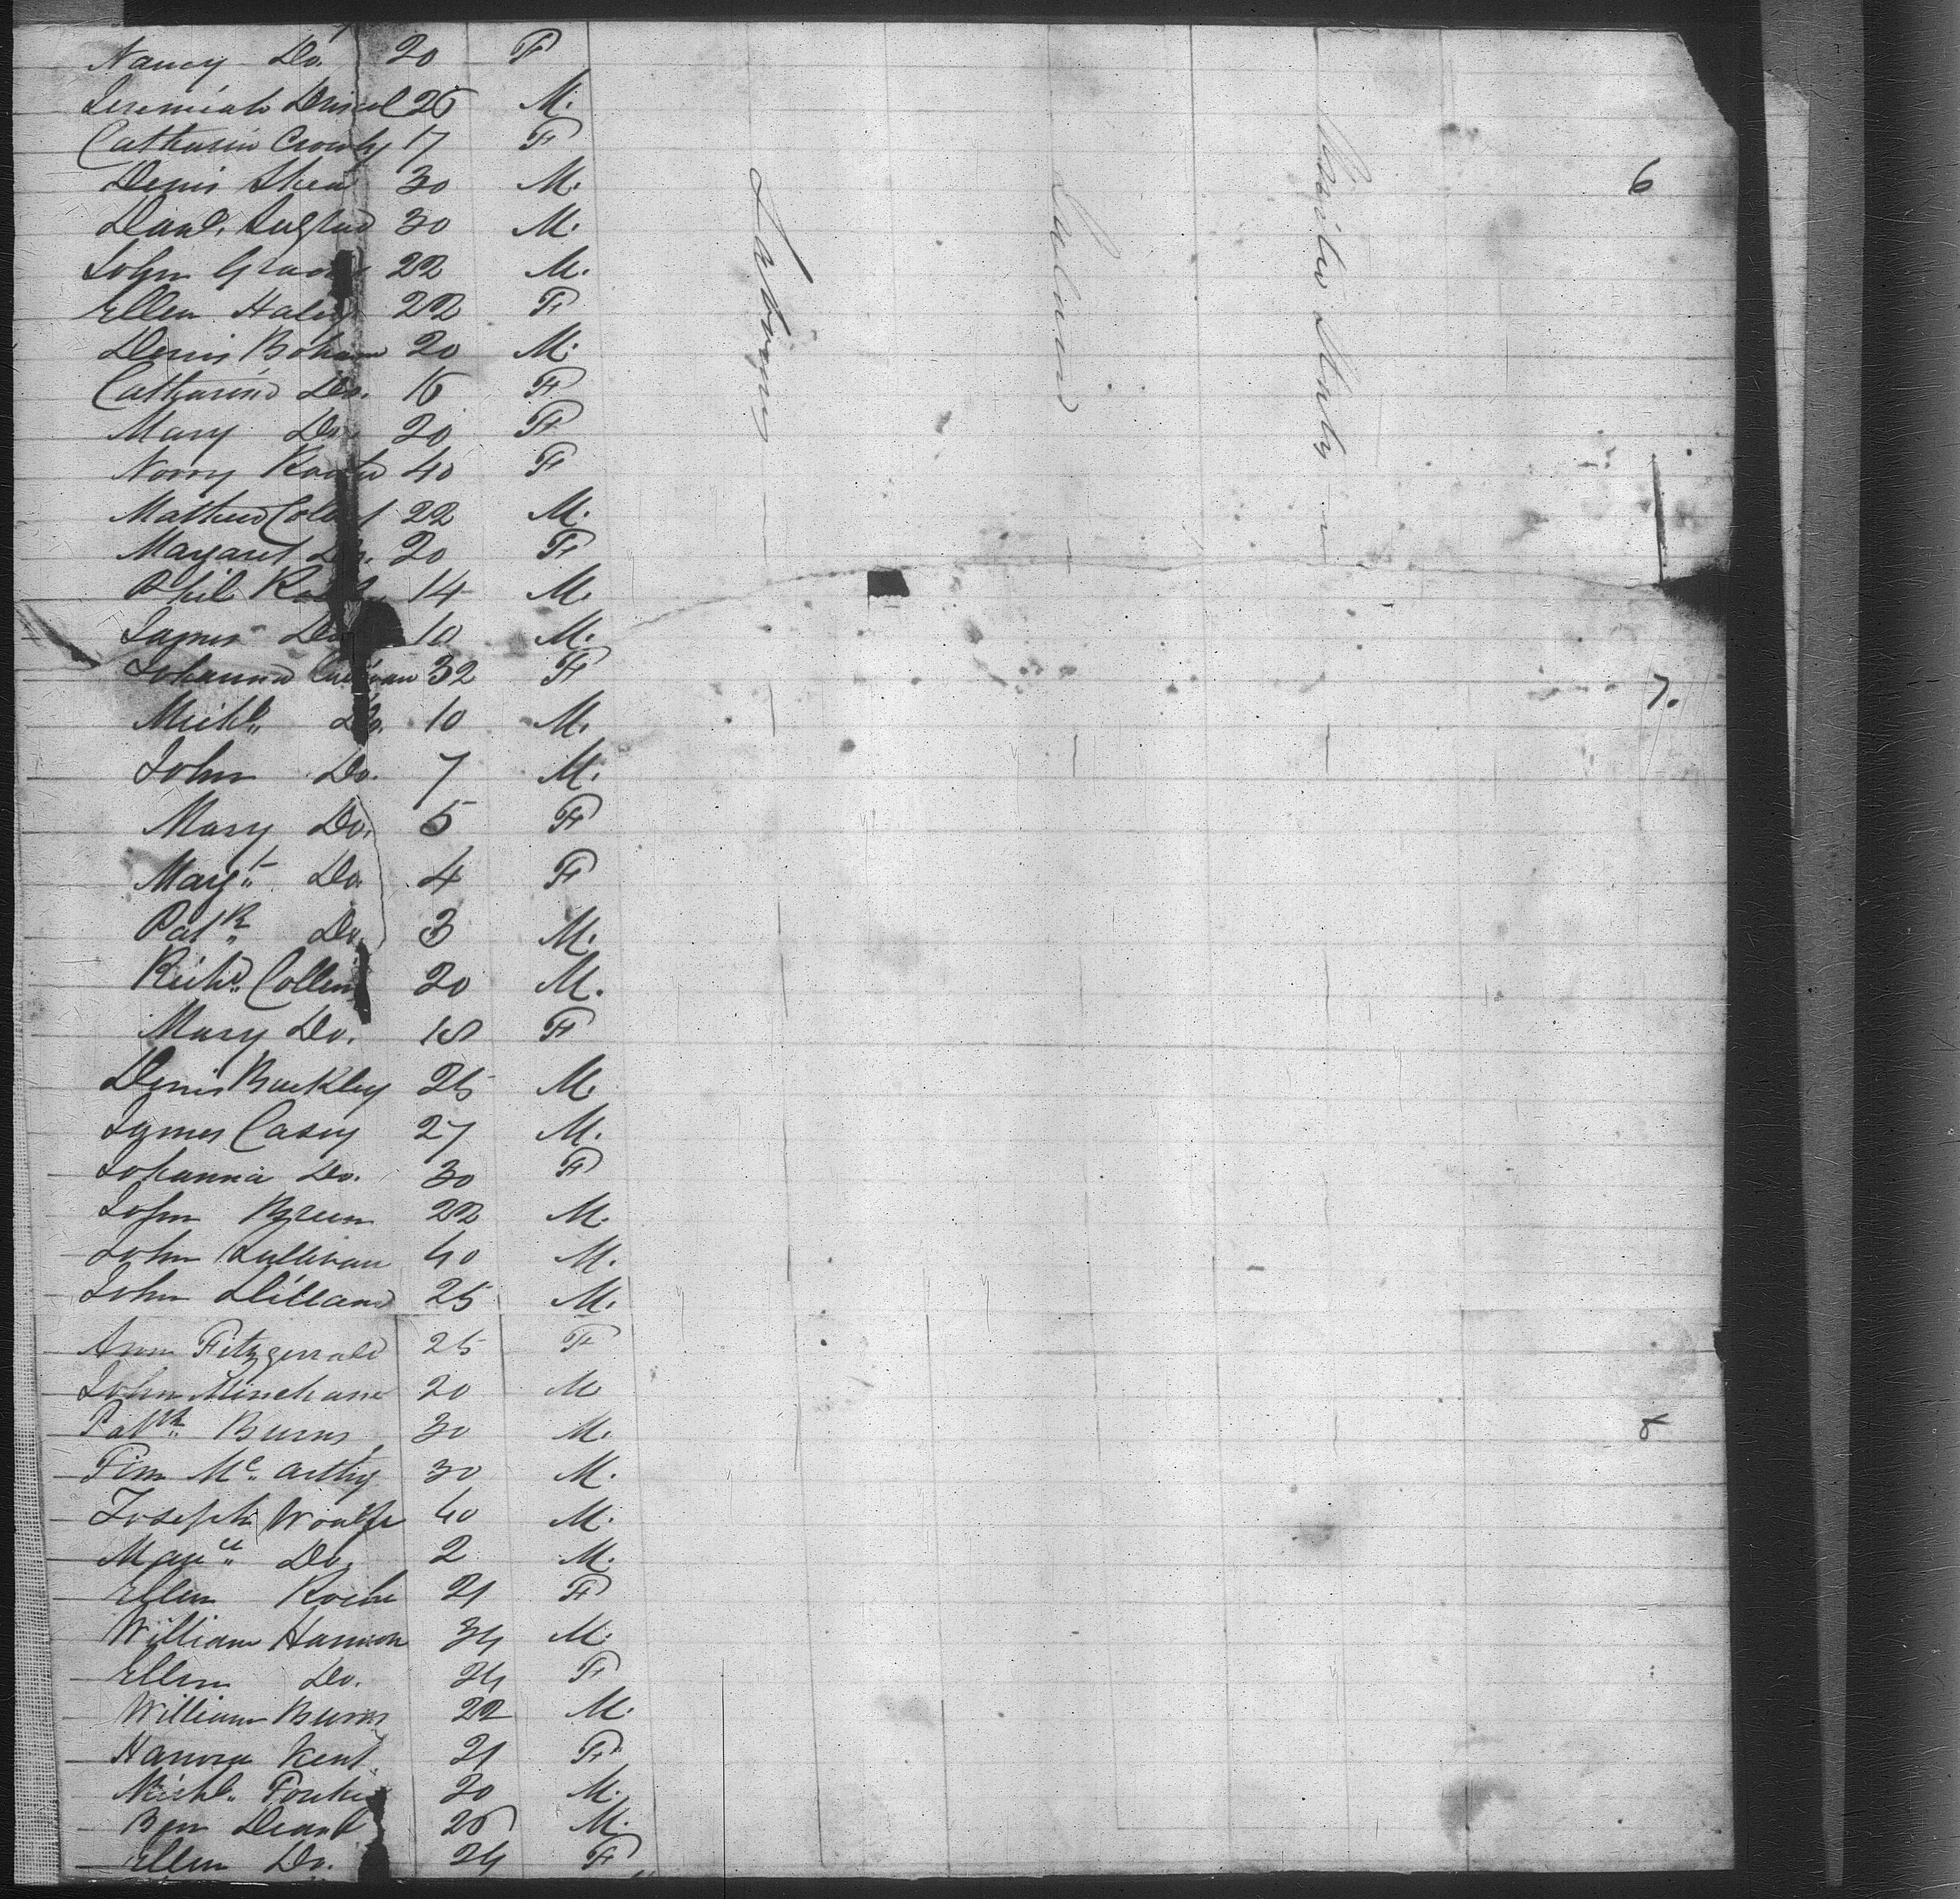 Nancy Do. 20 F
Jeremiah Driscol 25 M.
Catharine Crowly 17 F
Denis Shea 30 M. 6
Danl. 30 M.
John 22 M.
Ellen Haley 22 F
Denis Bohane 20 M.
Catharine Do. 16 F
Mary Do. 20 F
Norry 40 F
Mathew 22 M.
Margaret Do. 20 F
Phil 14 M.
James Do 10 M.
Johanna 32 F
Michl. Do. 10 M. 7.
John Do. 7 M.
Mary Do. 5 F
Margt. Do. 4 F
Patk. Do. 3 M.
Richd. Collins 20 M.
Mary Do. 18 F
Denis Buckley 25 M.
James Casey 27 M.
Johanna Do. 30 F
John Breen 22 M.
John Sullivan 40 M.
John 25 M.
Ann Fitzgerrald 25 F
John Minehane 20 M
Patk. Burns 30 M. 8
Tim Mc.arthy 30 M.
Joseph Woulfe 40 M.
Do. 2 M.
Ellen Roche 21 F
William Hannon 34 M.
Ellen Do. 24 F
William Burns 22 M.
Hanora Kent 21 F
Michl. 20 M.
Ben 26 M.
Ellen Do. 24 F
Labourers
United States